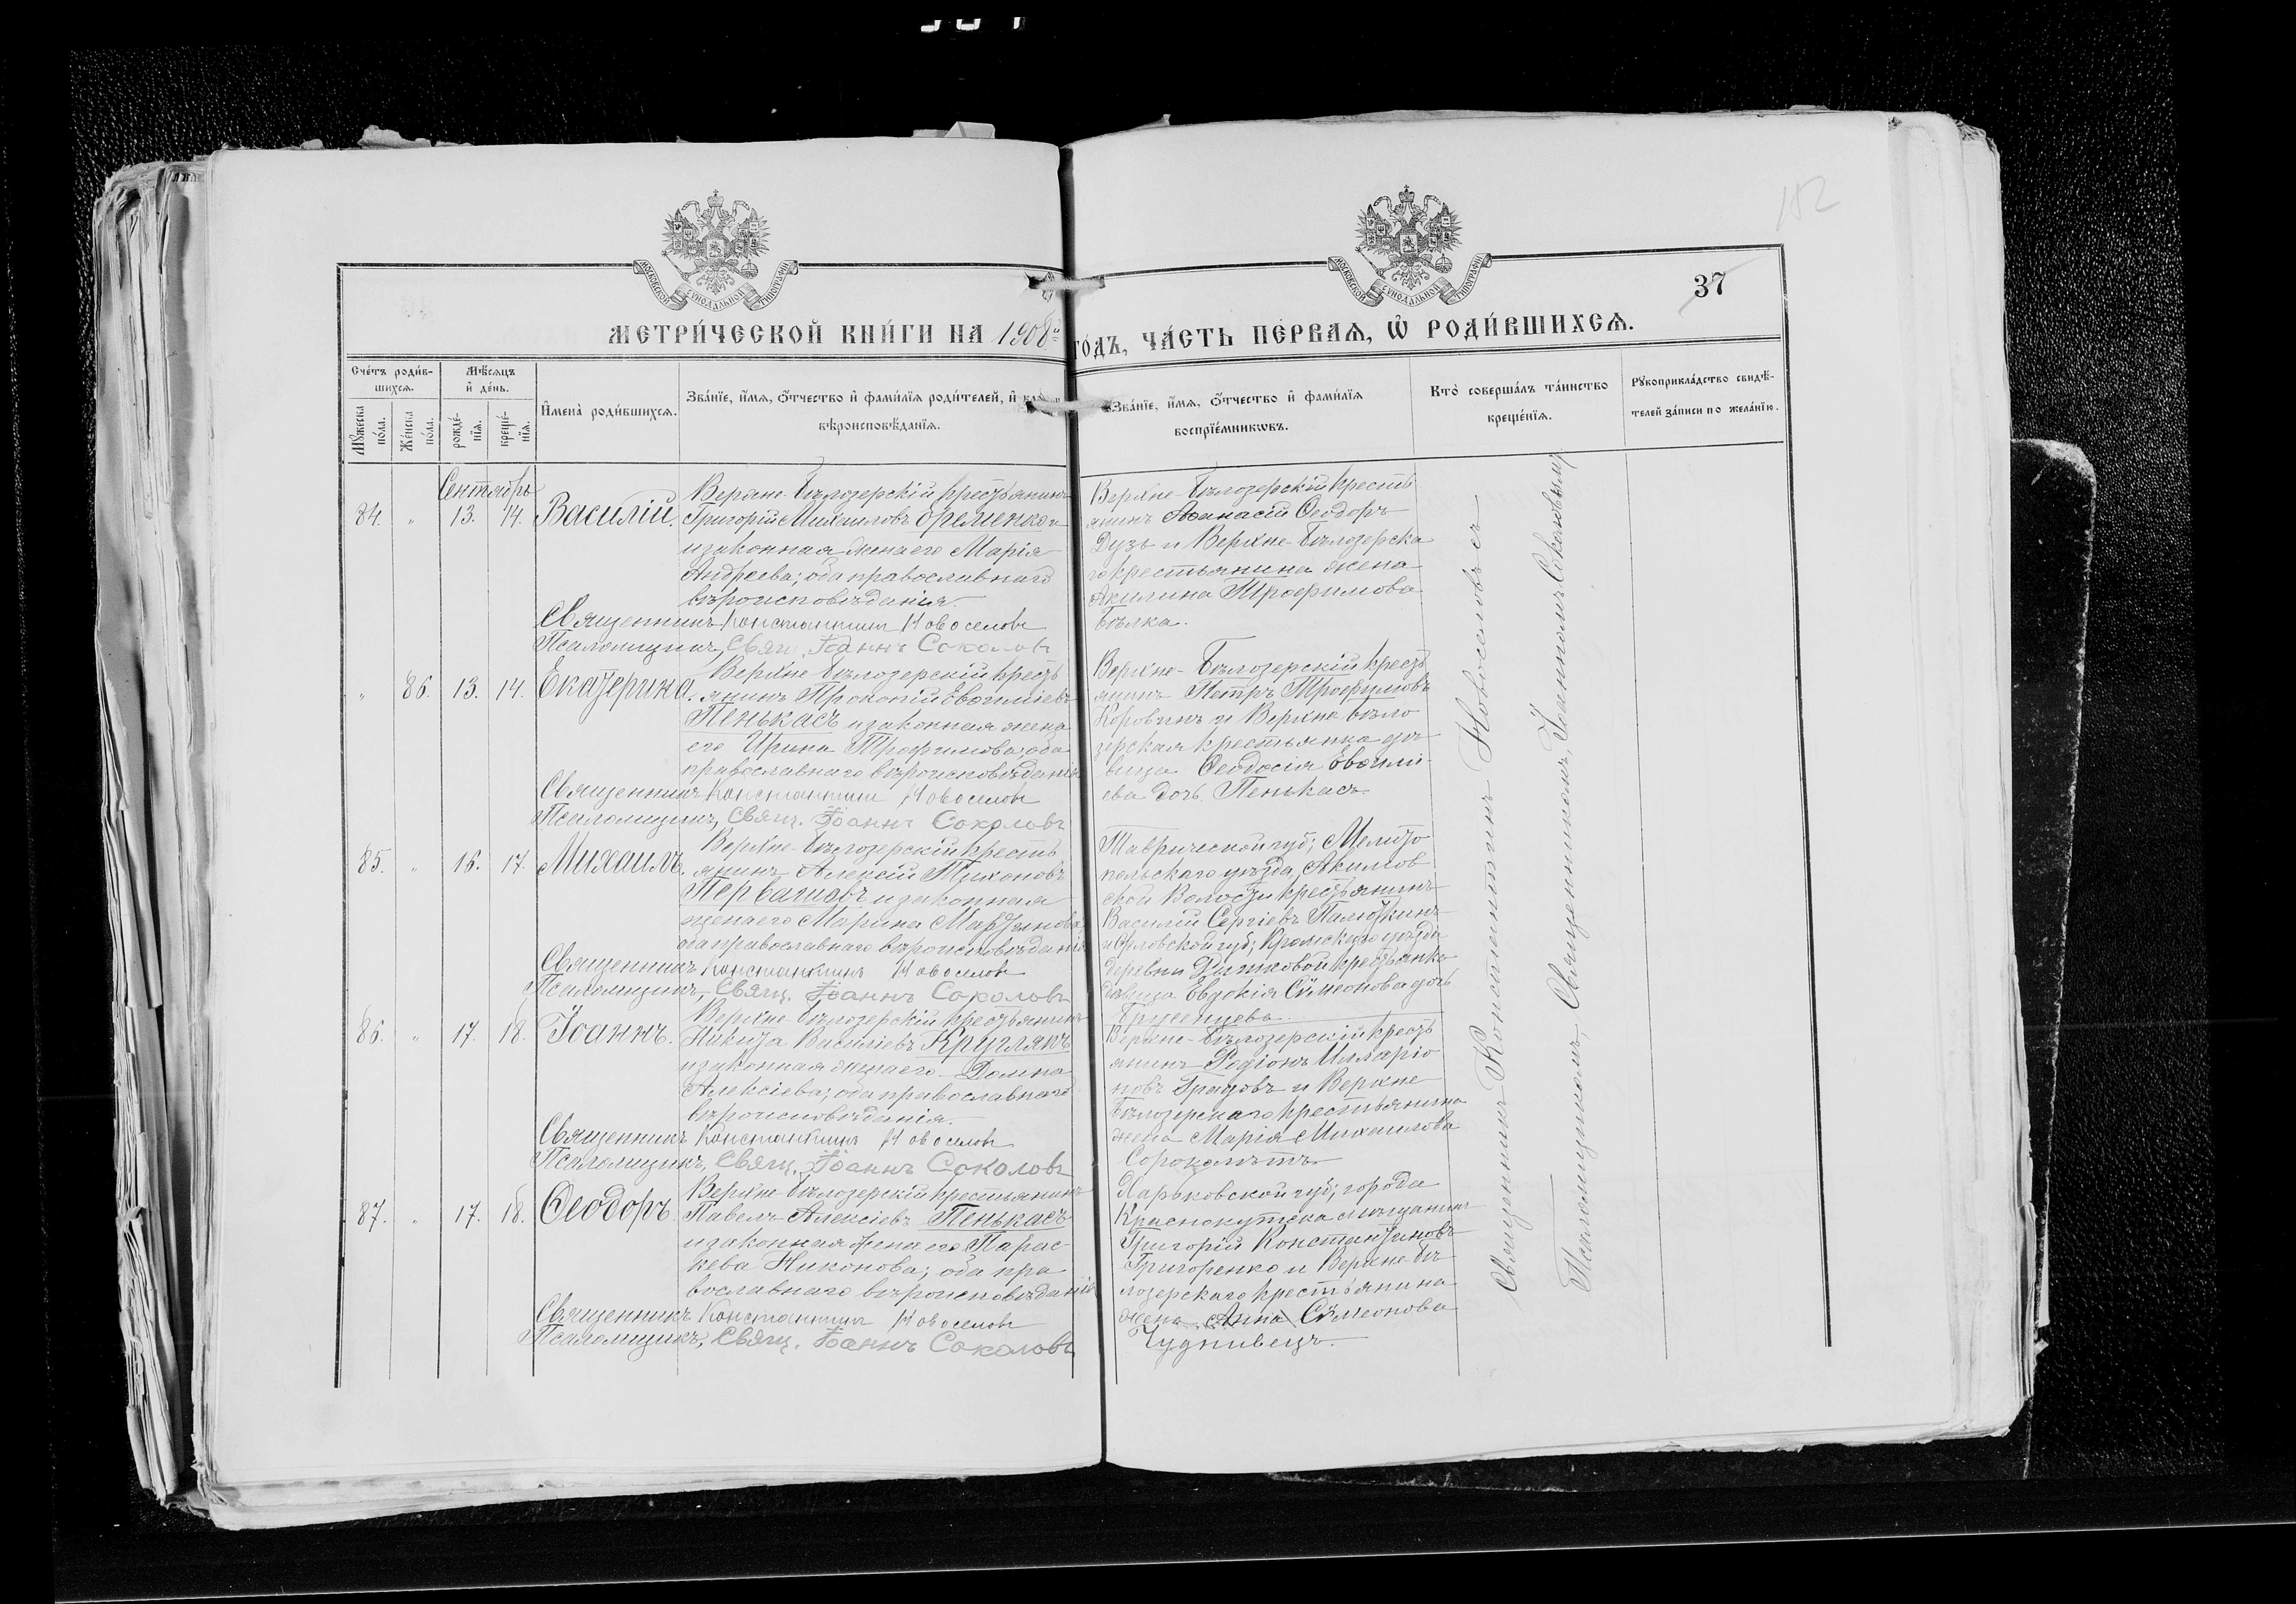 182
37
МОСКОВСКОЙ СУНОДАЛЬНОЙ ТИПОГРАФІИ
МОСКОВСКОЙ СУНОДАЛЬНОЙ ТИПОГРАФІИ
МЕТРИ́ЧЕСКОЙ КНИ́ГИ НА 1908й
ГО́ДЪ, ЧА́СТЬ ПЕ́РВАѦ, Ѡ҆ РОДИ́ВШИХСѦ.
Сче́тъ роди́в-
шихсѧ.
Мꙋ́жеска по́ла.
Же́нска по́ла.
Мѣ́сѧцъ
и҆ де́нь.
рожде́-нїѧ.
креще́-нїѧ.
И҆мена̀ роди́вшихсѧ.
Зва́нїе, и҆́мѧ, ѻ҆́тчество и҆ фами́лїѧ роди́телей, и҆
вѣроисповѣ́данїѧ.
Зва́нїе, и҆́мѧ, ѻ҆́тчество и҆ фами́лїѧ
воспрїе́мникѡвъ.
Кто̀ соверша́лъ та́инство
креще́нїѧ.
Рꙋкоприкла́дство свидѣ́-
телей за́писи по жела́нїю.
Сентябрь
84. " 13. 14. Василій.
Верхне-Бѣлозерскій крестьянинъ
Григорій Михаиловъ Ереленко и
и законная жена его Марія
Андреева; оба православнаго
вѣроисповѣданія.
Священникъ Константинъ Новоселовъ
Псаломщикъ, Свящ. Іоаннъ Соколовъ
Верхне-Бѣлозерскій кресть
янинъ Аѳанасій Ѳеодоръ
Дузъ и Верхне-Бѣлозерска
го крестьянина жена
Акилина Трофимова
Бѣлка.
" 86. 13. 14. Екатерина.
Верхне-Бѣлозерскій кресть
янинъ Прокопій Евѳиміевъ
Пенькасъ и законная жена
его Ирина Трофимова; оба
православнаго вѣроисповѣданія
Священникъ Константинъ Новоселовъ
Псаломщикъ, Свящ. Іоаннъ Соколовъ
Верхне-Бѣлозерскій кресть
янинъ Петръ Трофимовъ
Коровинъ и Верхне-Бѣло
зерская крестьянка дѣ
вица Ѳеодосія Евѳимі-
ева дочь Пенькасъ.
85. " 16. 17. Михаилъ.
Верхне-Бѣлозерскій кресть
янинъ Алексій Тихоновъ
Первашовъ и законная
жена его Марина Мартинова;
оба православнаго вѣроисповѣданія
Священникъ Константинъ Новоселовъ
Псаломщикъ, Свящ. Іоаннъ Соколовъ
Таврической губ; Мелито
польскаго уѣзда, Акимов
ской Волости крестьянинъ
Василій Сергіевъ Палюткинъ
и Орловской губ; Кромскаго уѣзда
деревни Рыжковой крестьянка
дѣвица Евдокія Сѵмеонова дочь
86. " 17. 18. Іоаннъ.
Верхне-Бѣлозерскій крестьянинъ
Никита Василіевъ Круглякъ
и законная жена его Домна
Алексіева; оба православнаго
вѣроисповѣданія.
Священникъ Константинъ Новоселовъ
Псаломщикъ, Свящ. Іоаннъ Соколовъ
Верхне-Бѣлозерскій кресть
янинъ Родіонъ Иларіо
новъ Градовъ и Верхне
Бѣлозерскаго крестьянина
жена Марія Михаилова
Сороколѣтъ.
87. " 17. 18. Ѳеодоръ.
Верхне-Бѣлозерскій крестьянинъ
Павелъ Алексіевъ Пенькасъ
и законная жена его Парас-
кева Никонова; оба пра
вославнаго вѣроисповѣданія
Священникъ Константинъ Новоселовъ
Псаломщикъ, Свящ. Іоаннъ Соколовъ
Харьковской губ; города
Краснокутска мѣщанинъ
Григорій Константиновъ
Григоренко и Верхне-Бѣ
лозерскаго крестьянина
жена Анна Сѵмеонова
Чуднивецъ.
Священникъ Константинъ Новоселовъ съ
Псаломщикомъ, Священникомъ Іоанномъ Соколовымъ